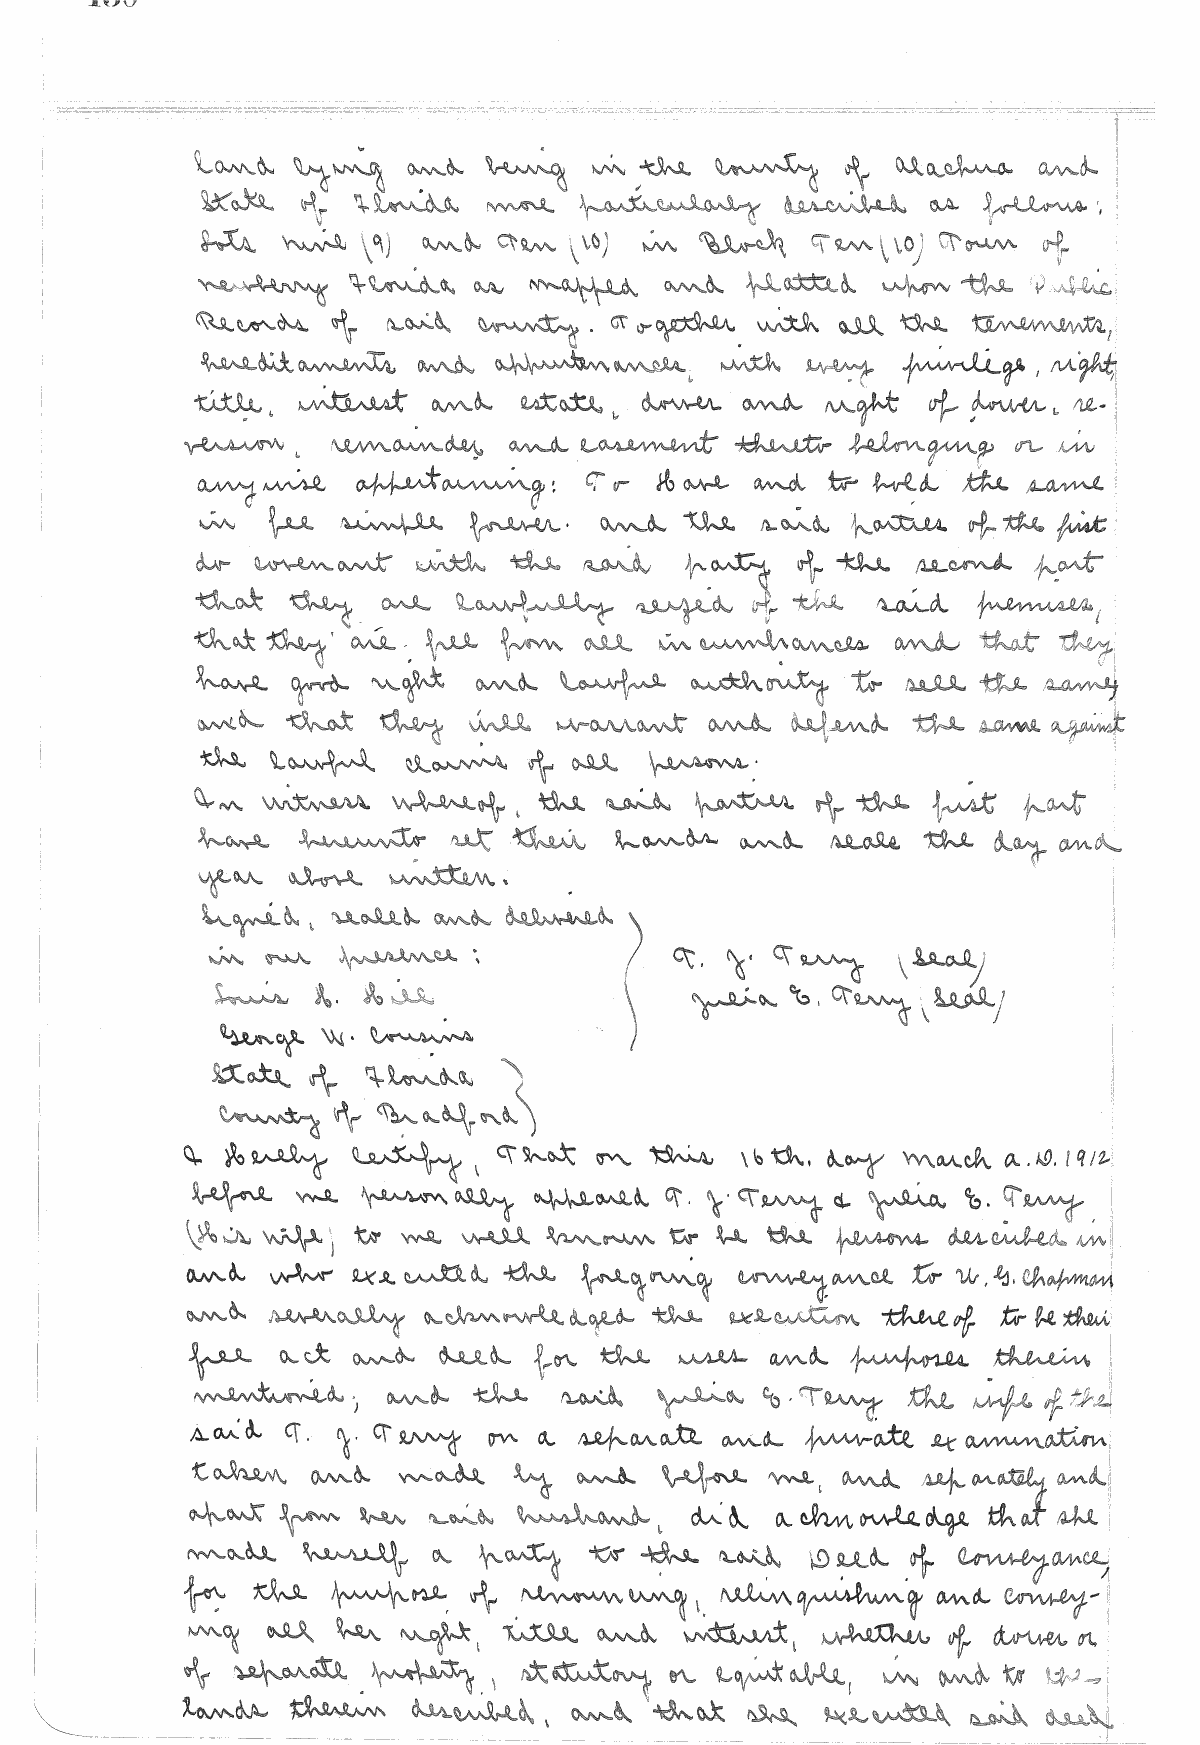 land lying and being in the county of Alachua and
State of Florida more particularly described as follows:
Lots nine (9) and Ten (10) in Block Ten (10) Town of
newberry Florida as mapped and platted upon the Public
Records of said county. Together with all the tenements,
hereditaments and appurtenances, with every privilege, right,
title, interest and estate, dower and right of dower, re-
version, remainder, and easement thereto belonging or in
anywise appertaining: To Have and to hold the same
in fee simple forever. and the said parties of the first
do covenant with the said party of the second part
that they are lawfully seized of the said premises,
that they are free from all incumbrances and that they
have good right and lawful authority to sell the same;
and that they will warrant and defend the same against
the lawful claims of all persons.
In witness whereof, the said parties of the first part
have hereunto set their hands and seals the day and
year above written.
Signed, sealed and delivered
in our presence:
T. J. Terry (Seal)
Louis H. Hill
Julia E. Terry (Seal)
George W. Cousins
State of Florida
County of Bradford
I Hereby Certify, That on this 16th. day March A.D. 1912
before me personally appeared T. J. Terry & Julia E. Terry
(His wife) to me well known to be the persons described in
and who executed the foregoing conveyance to W. G. Chapman
and severally acknowledged the execution thereof to be their
free act and deed for the uses and purposes therein
mentioned; and the said Julia E. Terry the wife of the
said T. J. Terry on a separate and private examination
taken and made by and before me, and separately and
apart from her said husband, did acknowledge that she
made herself a party to the said Deed of Conveyance,
for the purpose of renouncing, relinquishing and convey-
ing all her right, title and interest, whether of dower or
of separate property, statutory or equitable, in and to the
lands therein described, and that she executed said deed